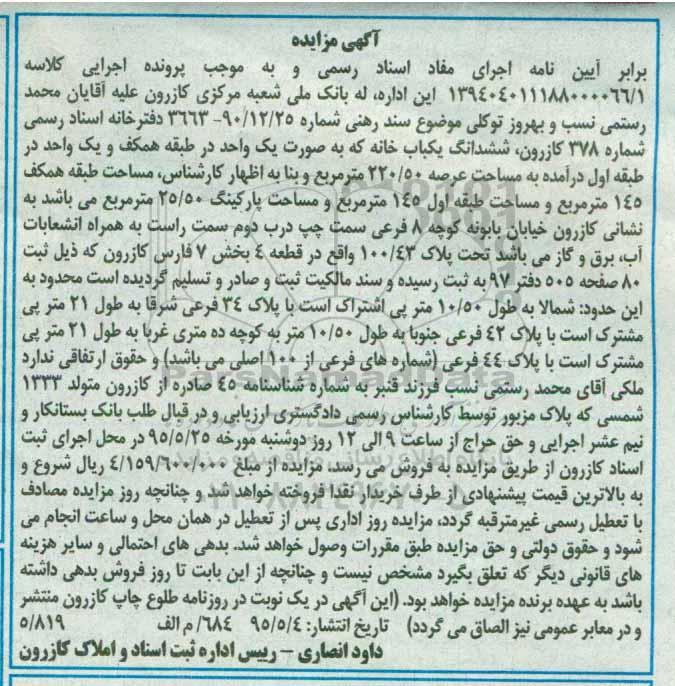 آگهی مزایده
برابر آیین نامه اجرای مفاد اسناد رسمی و به موجب پرونده اجرایی کلاسه
۱۳۹۴۰۴۰۱۱۱۸۸۰۰۰۰۶۶/۱ این اداره، له بانک ملی شعبه مرکزی کازرون علیه آقایان محمد
رستمی نسب و بهروز توکلی موضوع سند رهنی شماره ۹۰/۱۲/۲۵- ۳۶۶۳ دفترخانه اسناد رسمی
شماره ۳۷۸ کازرون، ششدانگ یکباب خانه که به صورت یک واحد در طبقه همکف و یک واحد در
طبقه اول درآمده به مساحت عرصه ۲۲۰/۵۰ مترمربع و بنا به اظهار کارشناس، مساحت طبقه همکف
۱۴۵ مترمربع و مساحت طبقه اول ۱۴۵ مترمربع و مساحت پارکینگ ۲۵/۵۰ مترمربع می باشد به
نشانی کازرون خیابان بابونه کوچه ۸ فرعی سمت چپ درب دوم سمت راست به همراه انشعابات
آب، برق و گاز می باشد تحت پلاک ۱۰۰/۴۳ واقع در قطعه ۴ بخش ۷ فارس کازرون که ذیل ثبت
۸۰ صفحه ۵۰۵ دفتر ۹۷ به ثبت رسیده و سند مالکیت ثبت و صادر و تسلیم گردیده است محدود به
این حدود: شمالا به طول ۱۰/۵۰ متر پی اشتراک است با پلاک ۳۴ فرعی شرقا به طول ۲۱ متر پی
مشترک است با پلاک ۴۲ فرعی جنوبا به طول ۱۰/۵۰ متر به کوچه ده متری غربا به طول ۲۱ متر پی
مشترک است با پلاک ۴۴ فرعی (شماره های فرعی از ۱۰۰ اصلی می باشد) و حقوق ارتفاقی ندارد
ملکی آقای محمد رستمی نسب فرزند قنبر به شماره شناسنامه ۴۵ صادره از کازرون متولد ۱۳۳۳
شمسی که پلاک مزبور توسط کارشناس رسمی دادگستری ارزیابی و در قبال طلب بانک بستانکار و
نیم عشر اجرایی و حق حراج از ساعت ۹ الی ۱۲ روز دوشنبه مورخه ۹۵/۵/۲۵ در محل اجرای ثبت
اسناد کازرون از طریق مزایده به فروش می رسد. مزایده از مبلغ ۴/۱۵۹/۶۰۰/۰۰۰ ریال شروع و
به بالاترین قیمت پیشنهادی از طرف خریدار نقدا فروخته خواهد شد و چنانچه روز مزایده مصادف
با تعطیل رسمی غیرمترقبه گردد، مزایده روز اداری پس از تعطیل در همان محل و ساعت انجام می
شود و حقوق دولتی و حق مزایده طبق مقررات وصول خواهد شد. بدهی های احتمالی و سایر هزینه
های قانونی دیگر که تعلق بگیرد مشخص نیست و چنانچه از این بابت تا روز فروش بدهی داشته
باشد به عهده برنده مزایده خواهد بود. (این آگهی در یک نوبت در روزنامه طلوع چاپ کازرون منتشر
و در معابر عمومی نیز الصاق می گردد) تاریخ انتشار: ۹۵/۵/۴ ۶۸۴/ م الف ۵/۸۱۹
داود انصاری – رییس اداره ثبت اسناد و املاک کازرون
ParsNamadData